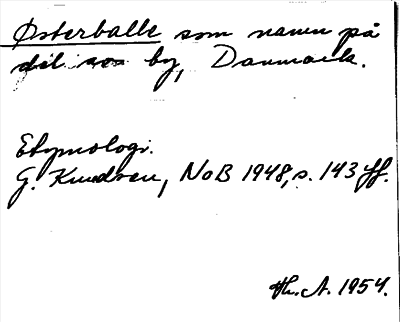 Østerballe som navn på
del av by, Danmark.
Etymologi.
G. Knudsen, NoB 1948, s. 143 ff.
Th. A. 1954.